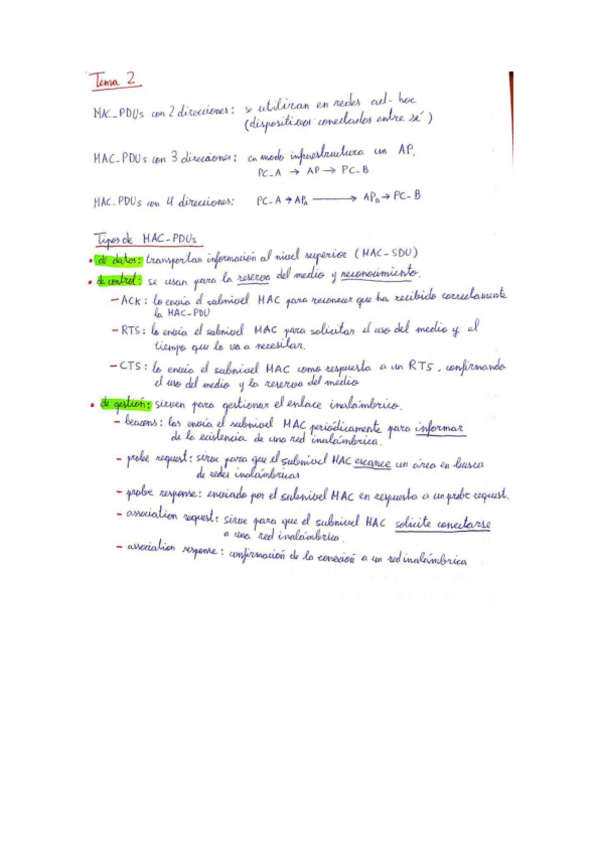 Tema 2
MAC-PDUs con 2 direcciones: se utilizan en redes ad-hoc
(dispositivos conectados entre sí)
MAC-PDUs con 3 direcciones: en modo infraestructura un AP.
PC-A → AP → PC-B
MAC-PDUs con 4 direcciones: PC-A → APA → APB → PC-B
Tipos de MAC-PDUs
• de datos: transportan información al nivel superior (MAC-SDU)
• de control: se usan para la reserva del medio y reconocimiento.
- ACK: lo envía el subnivel MAC para reconocer que ha recibido correctamente
la MAC-PDU
- RTS: lo envía el subnivel MAC para solicitar el uso del medio y el
tiempo que lo va a necesitar.
- CTS: lo envía el subnivel MAC como respuesta a un RTS, confirmando
el uso del medio y la reserva del medio
• de gestión: sirven para gestionar el enlace inalámbrico.
- beacons: las envía el subnivel MAC periódicamente para informar
de la existencia de una red inalámbrica.
- probe request: sirve para que el subnivel MAC escanee un área en busca
de redes inalámbricas
- probe response: enviado por el subnivel MAC en respuesta a un probe request.
- association request: sirve para que el subnivel MAC solicite conectarse
a una red inalámbrica.
- association response: confirmación de la conexión a un red inalámbrica